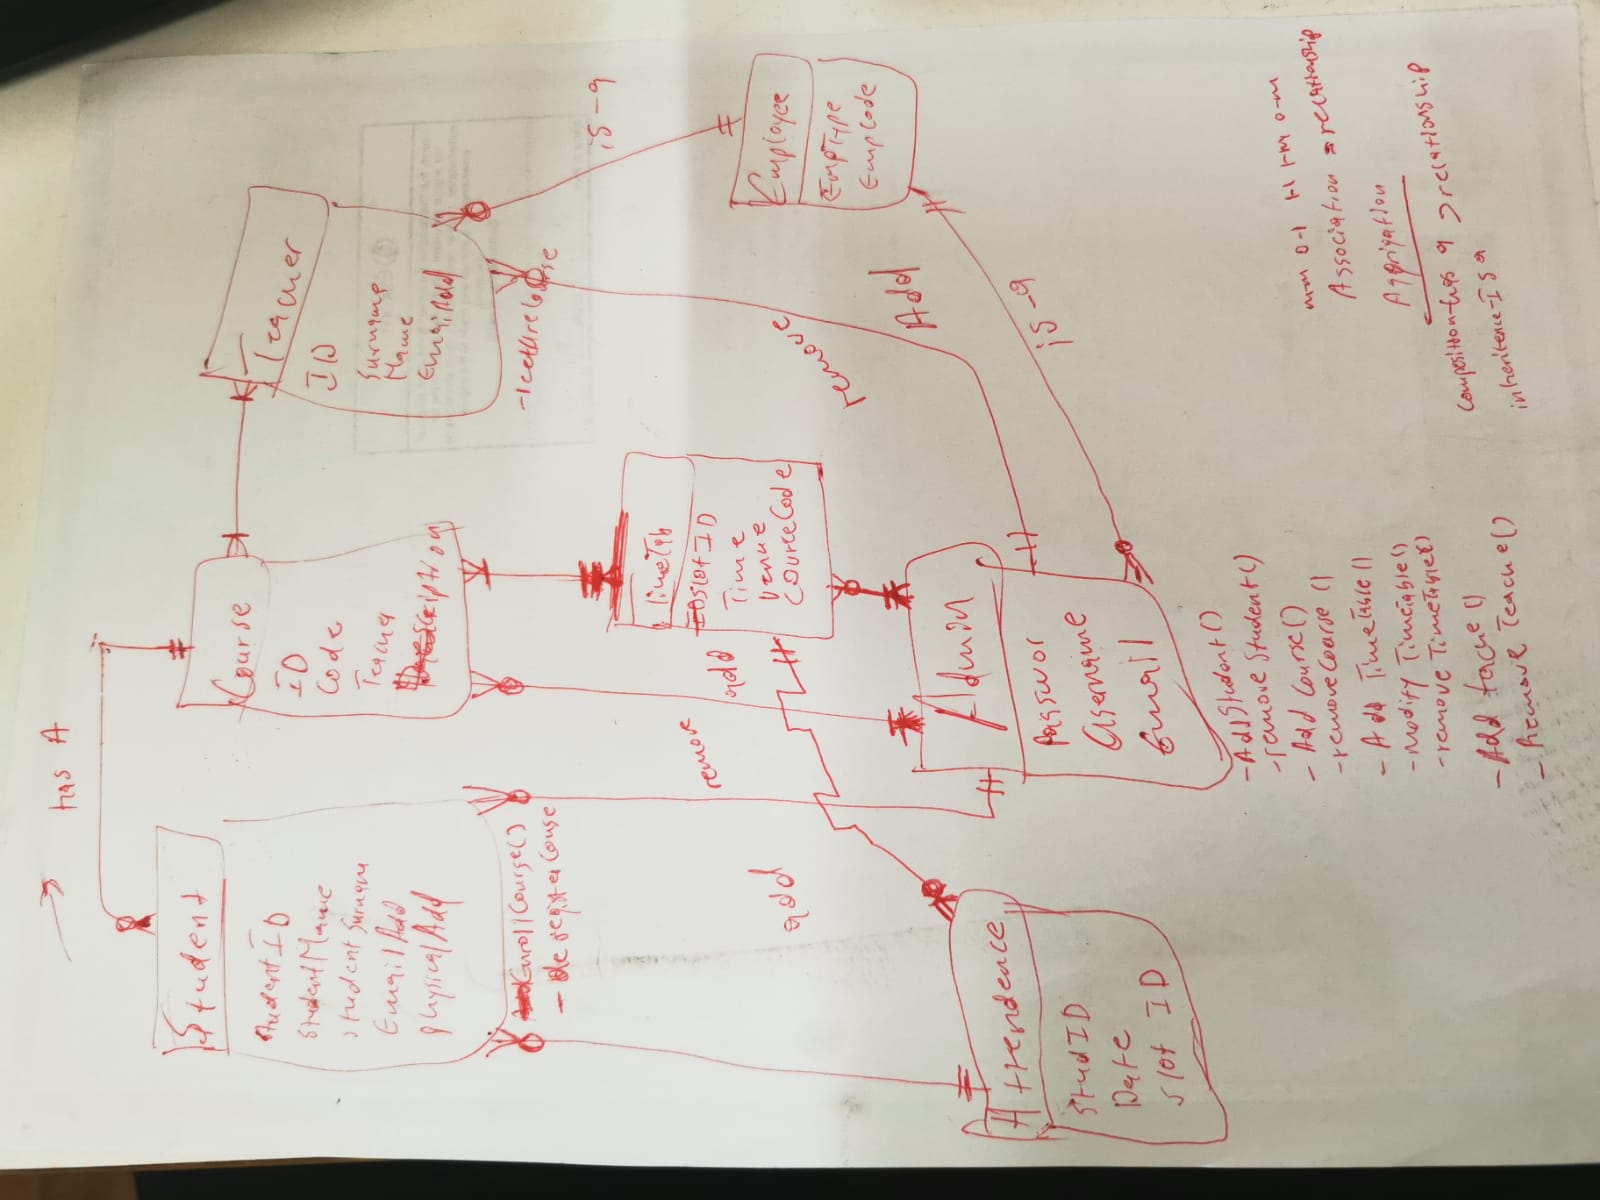 → has A
Student
StudentID
StudentName
StudentSurnam
Email Add
Physical Add
Enroll Course()
- De register Couse
Course
ID
Code
Teacher
Teacher
ID
Surname
Name
Email Add
is-a
Employee
EmpType
EmpCode
TimeTab
slot ID
Time
Venue
Course Code
add
remove
remove
Add
is-a
add
Admin
Passwor
Username
Email
- Add Student()
- remove Student()
- Add Course()
- remove Coarse()
- Add TimeTable()
- modify Timetable()
- remove Timetable()
- Add teache()
- Remove Teache()
Attendence
StudID
Date
Slot ID
Association = relationship
Aggrigation
Composition-has a > relationship
inheritence-Is a